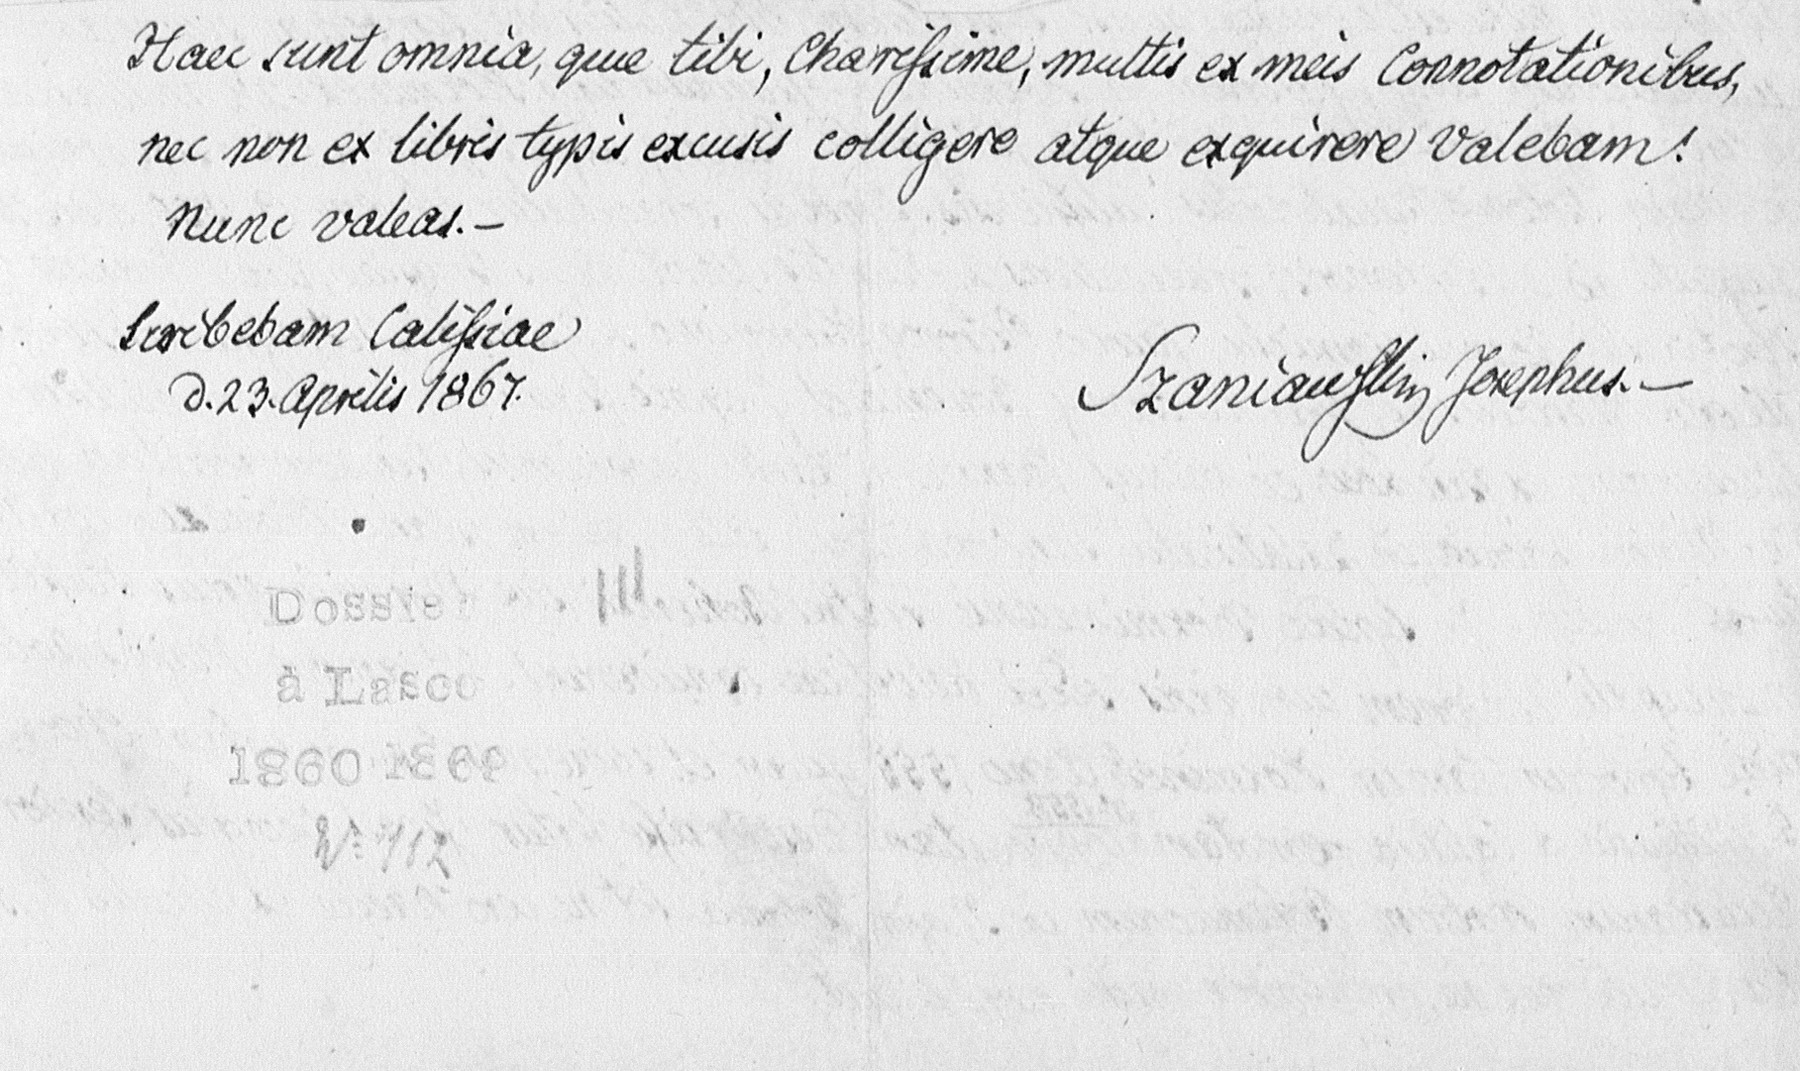 Haec sunt omnia, quae tibi, Charissime, multis ex meis Connotationibus,
nec non ex libris typis excusis colligere atque exquirere valebam!
Nunc valeas.—
Scribebam Calissiae
d. 23. Aprilis 1867.
Szaniawski Josephus.—
Dossier III
à Lasco
1860 1869
№ 712